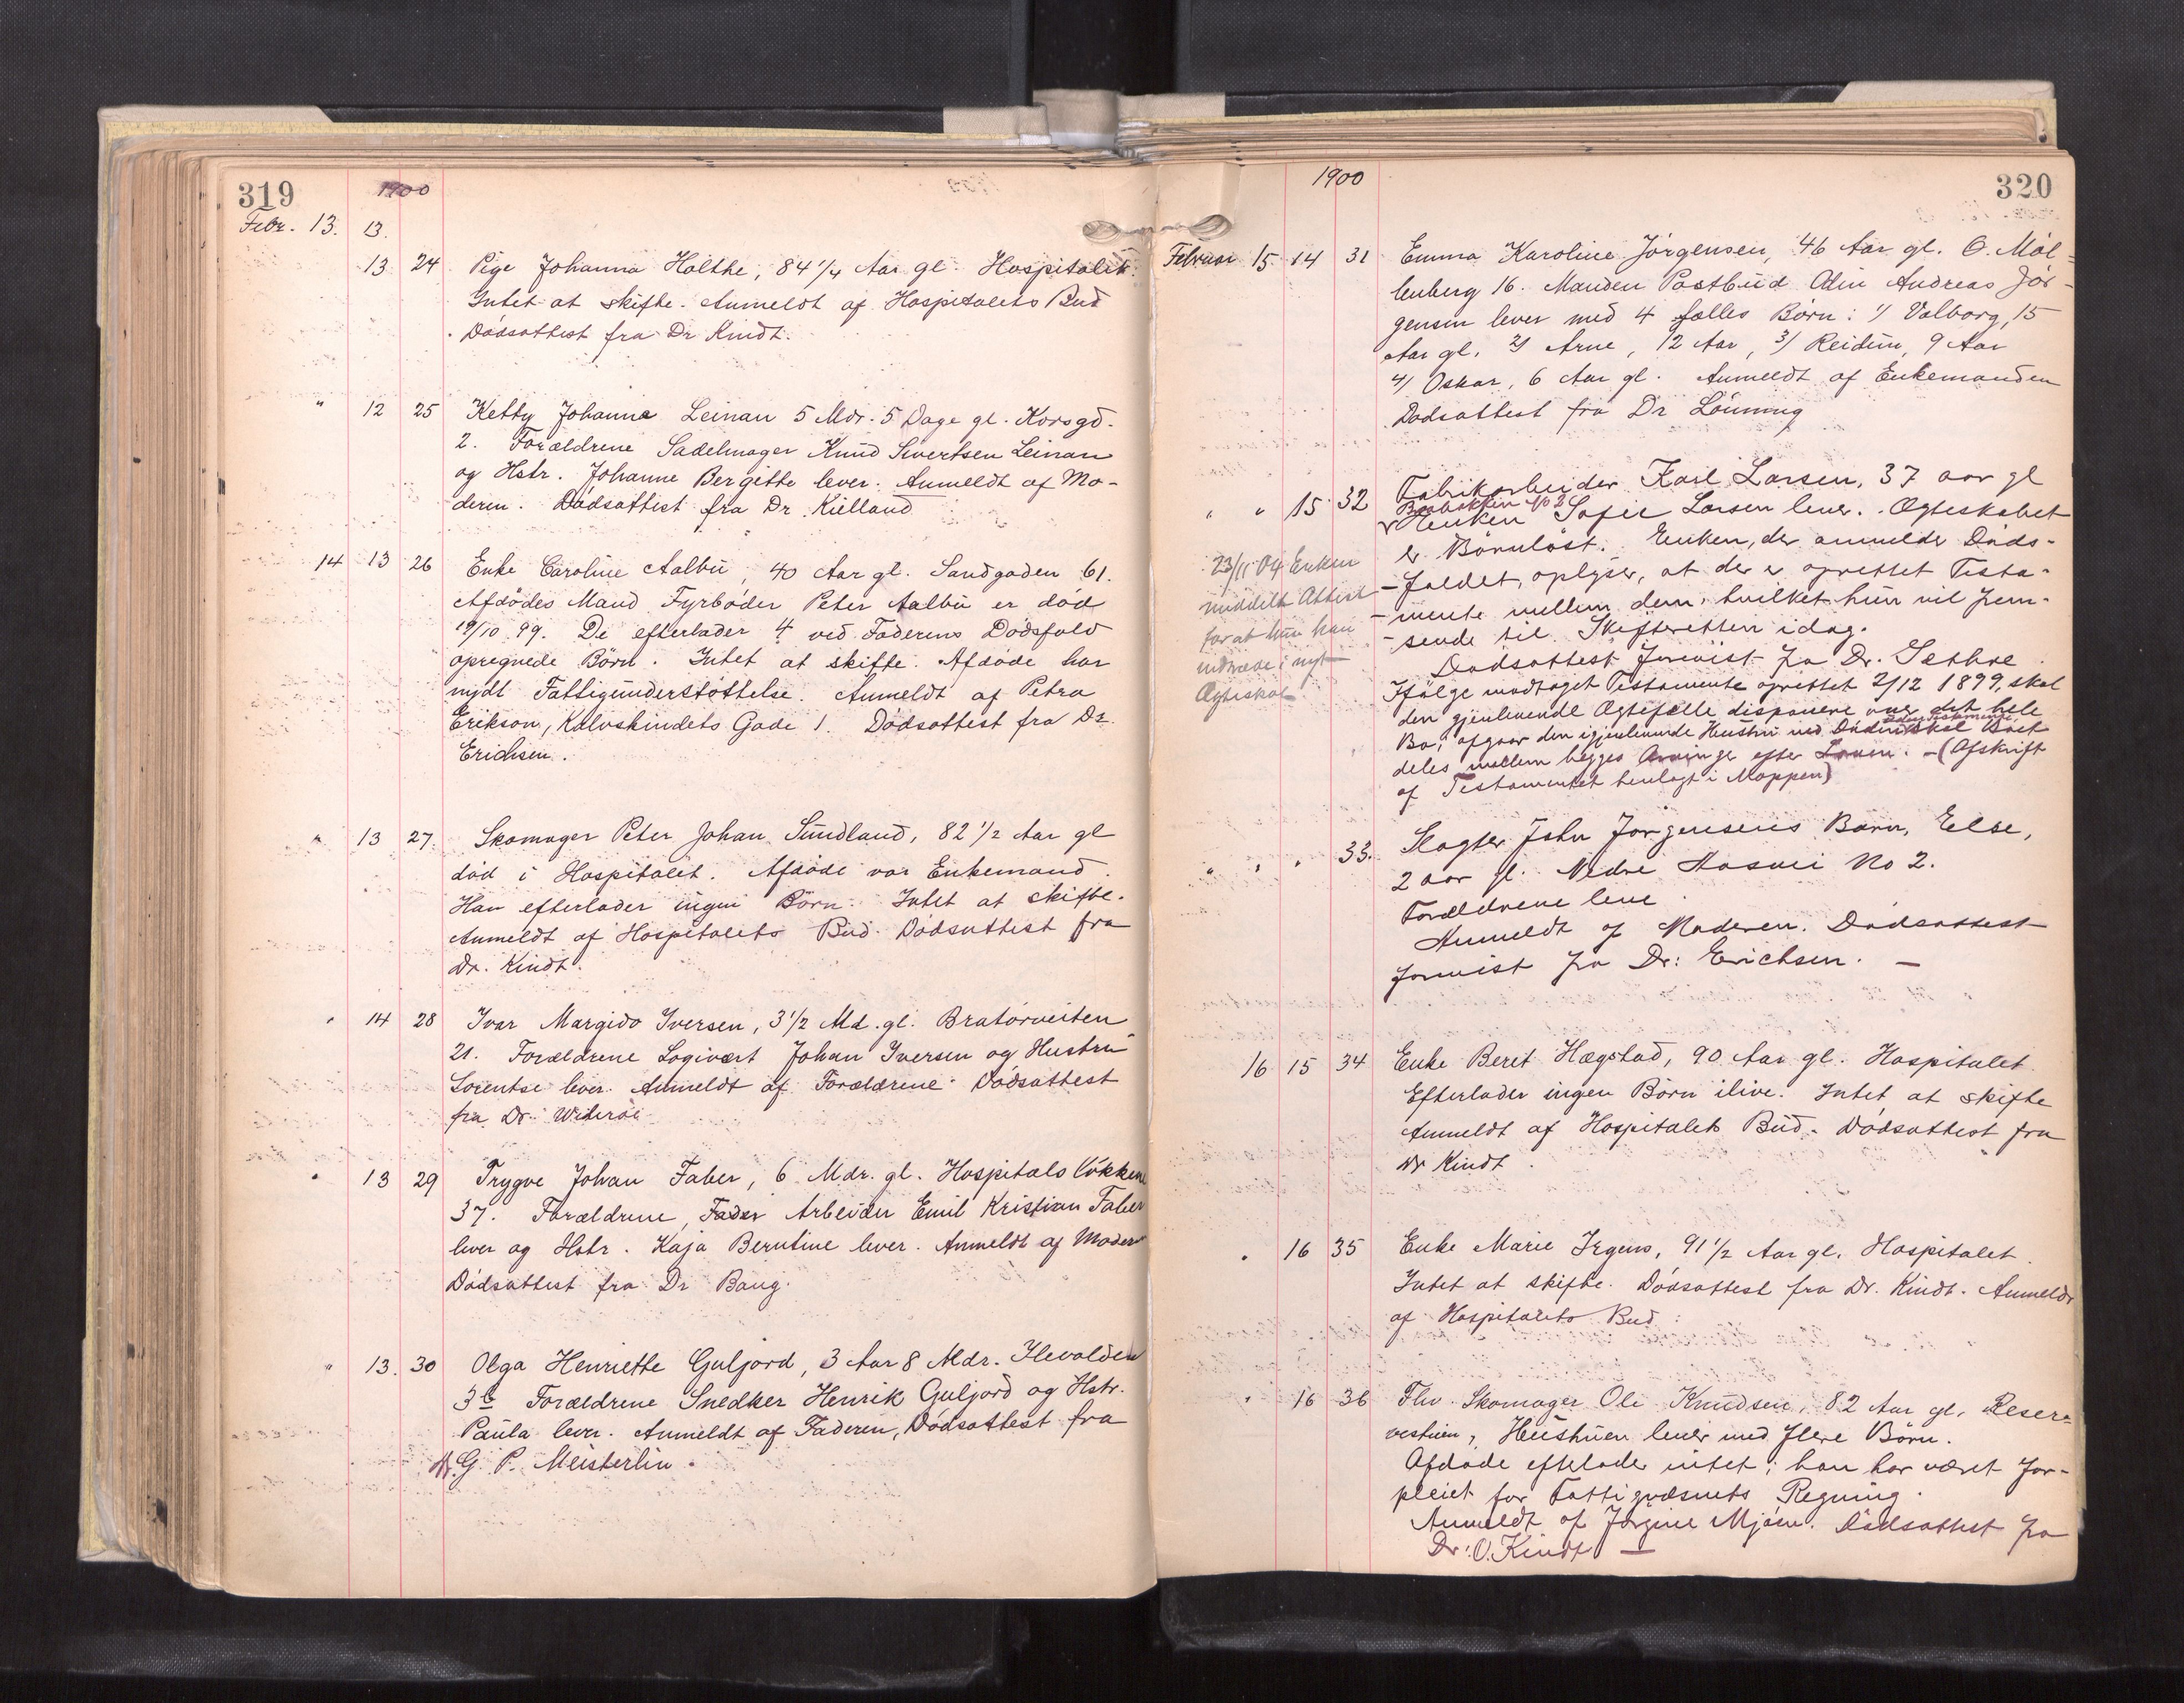 319
1900
Febr. 13. 13.
13 24 Pige Johanna Holthe, 84 1/4 Aar gl. Hospitalet.
Intet at skifte. Anmeldt af Hospitalets Bud
Dödsattest fra Dr Kindt.
" 12 25 Ketty Johanne Leinan 5 Mdr. 5 Dage gl. Korsgd.
2. Forældrene Sadelmager Knud Sivertsen Leinan
og Hstr. Johanne Bergitte lever. Anmeldt af Mo-
deren. Dödsattest fra Dr. Kielland
14 13 26 Enke Caroline Aalbu, 40 Aar gl. Sandgaden 61.
Afdödes Mand Fyrböder Peter Aalbu er död
19/10 99. De efterlader 4 ved Faderens Dödsfald
opregnede Börn. Intet at skifte. Afdöde har
nydt Fattigunderstöttelse. Anmeldt af Petra
Erikson, Kalvskindets Gade 1. Dödsattest fra Dr.
Erichsen.
" 13 27. Skomager Peter Johan Sundland, 82 1/2 Aar gl
död i Hospitalet. Afdöde var Enkemand.
Han efterlader ingen Börn. Intet at skifte.
Anmeldt af Hospitalets Bud. Dödsattest fra
Dr. Kindt.
" 14 28 Ivar Margido Iversen, 3 1/2 Md. gl. Bratörveiten
21. Forældrene Logivært Johan Iversen og Hustru
Lorentse lever. Anmeldt af Forældrene. Dödsattest
fra Dr. Wideröe
" 13 29 Trygve Johan Faber, 6 Mdr. gl. Hospitals Lökken
37. Forældrene, Fader Arbeider Emil Kristian Faber
lever og Hstr. Kaja Berntine lever. Anmeldt af Moder
Dödsattest fra Dr Bang.
" 13. 30 Olga Henriette Guljord, 3 Aar 8 Mdr. Ilevolden
3 b Forældrene Snedker Henrik Guljord og Hstr.
Paula lever. Anmeldt af Faderen, Dödsattest fra
Dr. G. P. Meisterlin.
1900
320
Februar 15 14 31 Emma Karoline Jörgensen, 46 Aar gl. O. Möl=
lenberg 16. Manden Postbud Odin Andreas Jör-
gensen lever med 4 fælles Börn: 1/ Valborg, 15
Aar gl. 2/ Arne, 12 Aar, 3/ Reidun, 9 Aar
4/ Oskar, 6 Aar gl. Anmeldt af Enkemanden
Dödsattest fra Dr Lönning
" " 15 32 Fabrikarbeider Karl Larsen, 37 aar gl
Bakken No 2
Enken Sofie Larsen lever. Ægteskabet
er Börnlöst. Enken, der anmelder Döds-
-faldet, oplyser, at der er oprettet Testa-
-mente mellem dem, hvilket hun vil frem-
-sende til Skifteretten idag.
23/11 04 Enken
meddelt Attest
for at hun kan
indtræde i nyt
Ægteskab
Dödsattest forevist fra Dr. Sethre.
Ifölge modtaget Testamente oprettet 2/12 1899, skal
den gjenlevende Ægtefælle disponere over det hele
Bo; afgaar den igjenlevende Hustru ved Döden skal Boet
deles mellem begges Arvinge efter Loven. - (Afskrift
af Testamentet henlagt i Mappen)
" " " 33. Slagter John Jörgensens Barn, Else,
2 aar gl. Nedre No 2.
Forældrene leve.
Anmeldt af Moderen. Dödsattest
forevist fra Dr: Erichsen. -
16 15 34 Enke Beret Hægstad, 90 Aar gl. Hospitalet.
Efterlader ingen Börn ilive. Intet at skifte
Anmeldt af Hospitalets Bud. Dödsattest fra
Dr Kindt.
" 16 35 Enke Marie Irgens, 91 1/2 Aar gl. Hospitalet.
Intet at skifte. Dödsattest fra Dr. Kindt. Anmeldt
af Hospitalets Bud.
" 16 36 Fhv. Skomager Ole Knudsen, 82 Aar gl. Reser=
vestuen, Hustruen lever med flere Börn.
Afdöde efterlader intet; han har været for-
pleiet for Fattigvæsnets Regning.
Anmeldt af Jörgine Mjöen. Dödsattest fra
Dr: O. Kindt -